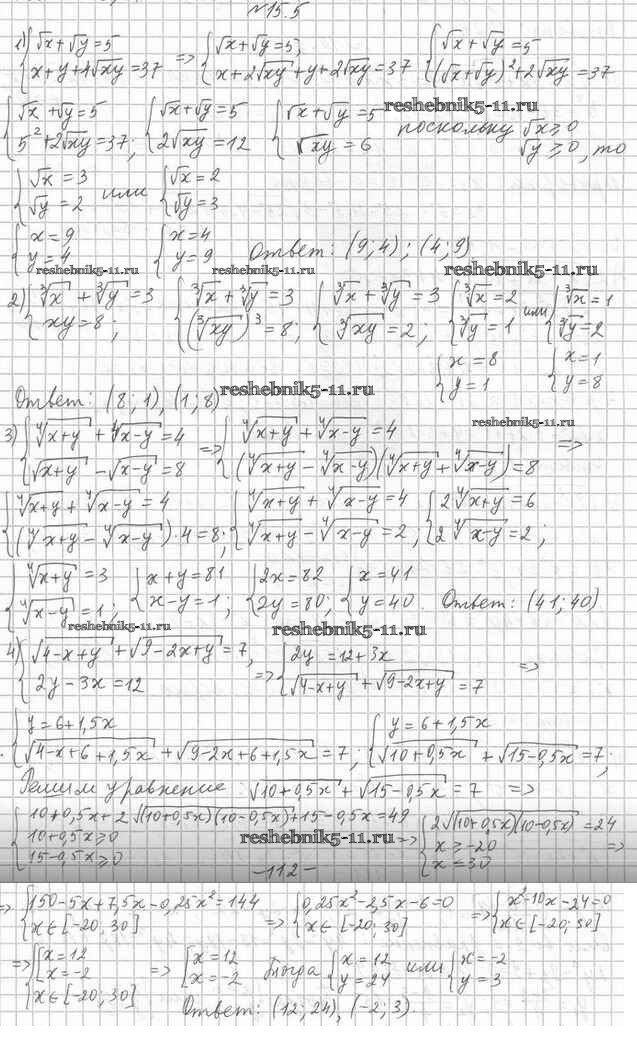 №15.5
1) {√x+√y=5 {x+y+4√xy=37 => {√x+√y=5, {x+2√xy+y+2√xy=37 {√x+√y=5 {(√x+√y)²+2√xy=37
{√x+√y=5 {5²+2√xy=37; {√x+√y=5 {2√xy=12 {√x+√y=5 {√xy=6 поскольку √x≥0 √y≥0, то
reshebnik5-11.ru
{√x=3 {√y=2 или {√x=2 {√y=3
{x=9 {y=4 {x=4 {y=9 Ответ: (9;4); (4;9)
reshebnik5-11.ru reshebnik5-11.ru reshebnik5-11.ru
2) {∛x+∛y=3 {xy=8; {∛x+∛y=3 {(∛xy)³=8; {∛x+∛y=3 {∛xy=2; {∛x=2 {∛y=1 или {∛x=1 {∛y=2
{x=8 {y=1 {x=1 {y=8
Ответ: (8;1), (1;8)
reshebnik5-11.ru
3) {∜x+y + ∜x-y=4 {√x+y - √x-y=8 => {∜x+y + ∜x-y=4 {(∜x+y - ∜x-y)(∜x+y + ∜x-y)=8 =>
reshebnik5-11.ru
{∜x+y + ∜x-y=4 {(∜x+y - ∜x-y)·4=8; {∜x+y + ∜x-y=4 {∜x+y - ∜x-y=2; {2∜x+y=6 {2∜x-y=2;
{∜x+y=3 {∜x-y=1; {x+y=81 {x-y=1; {2x=82 {2y=80; {x=41 {y=40. Ответ: (41;40)
reshebnik5-11.ru reshebnik5-11.ru
4) {√4-x+y + √9-2x+y=7, {2y-3x=12 => {2y=12+3x {√4-x+y + √9-2x+y=7 =>
{y=6+1,5x {√4-x+6+1,5x + √9-2x+6+1,5x=7; {y=6+1,5x {√10+0,5x + √15-0,5x=7;
Решим уравнение: √10+0,5x + √15-0,5x=7 =>
{10+0,5x+2√(10+0,5x)(10-0,5x)+15-0,5x=49 {10+0,5x≥0 {15-0,5x≥0 => {2√(10+0,5x)(10-0,5x)=24 {x≥-20 {x≤30 =>
reshebnik5-11.ru
-112-
=> {150-5x+7,5x-0,25x²=144 {x∈[-20;30] => {0,25x²-2,5x-6=0 {x∈[-20;30] => {x²-10x-24=0 {x∈[-20;30]
=> {[x=12 [x=-2 {x∈[-20;30] => [x=12 [x=-2 Тогда {x=12 {y=24 или {x=-2 {y=3
Ответ: (12;24), (-2;3).